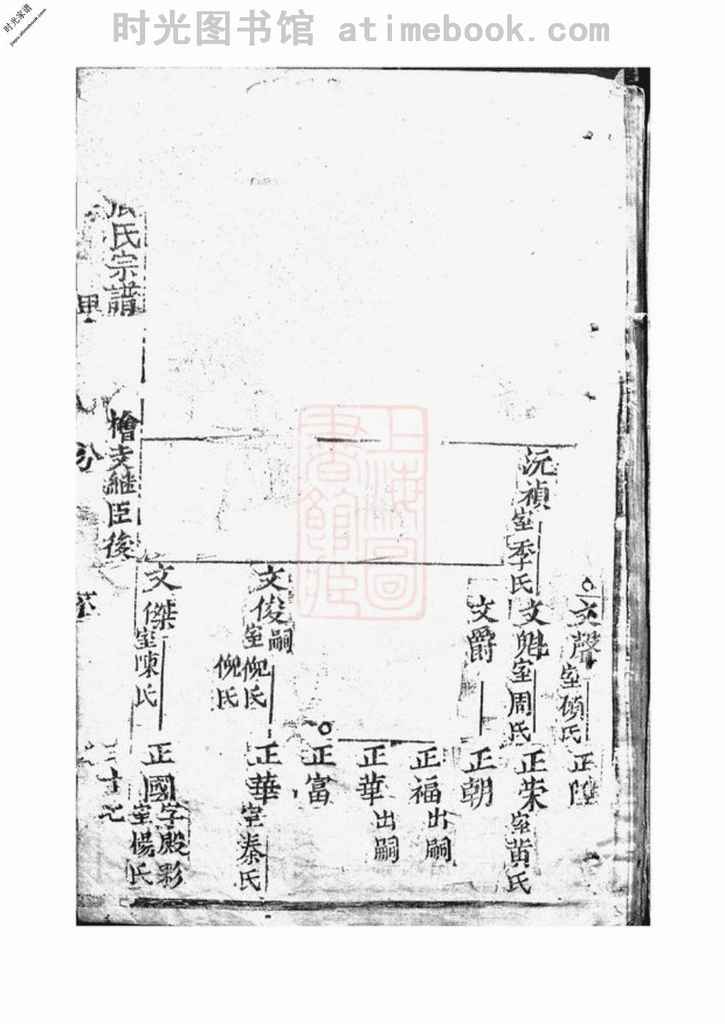 时光图书馆 atimebook.com
时光家谱
上海图書館藏
沅禎室季氏
文聲室
正
文魁室周氏
正荣室黄氏
文爵
正朝
正福出嗣
正華出嗣
正富
文俊嗣室倪氏倪氏
正華室秦氏
文傑室陳氏
正國字殿彩室楊氏
氏宗譜
檜支繼臣後
三十七